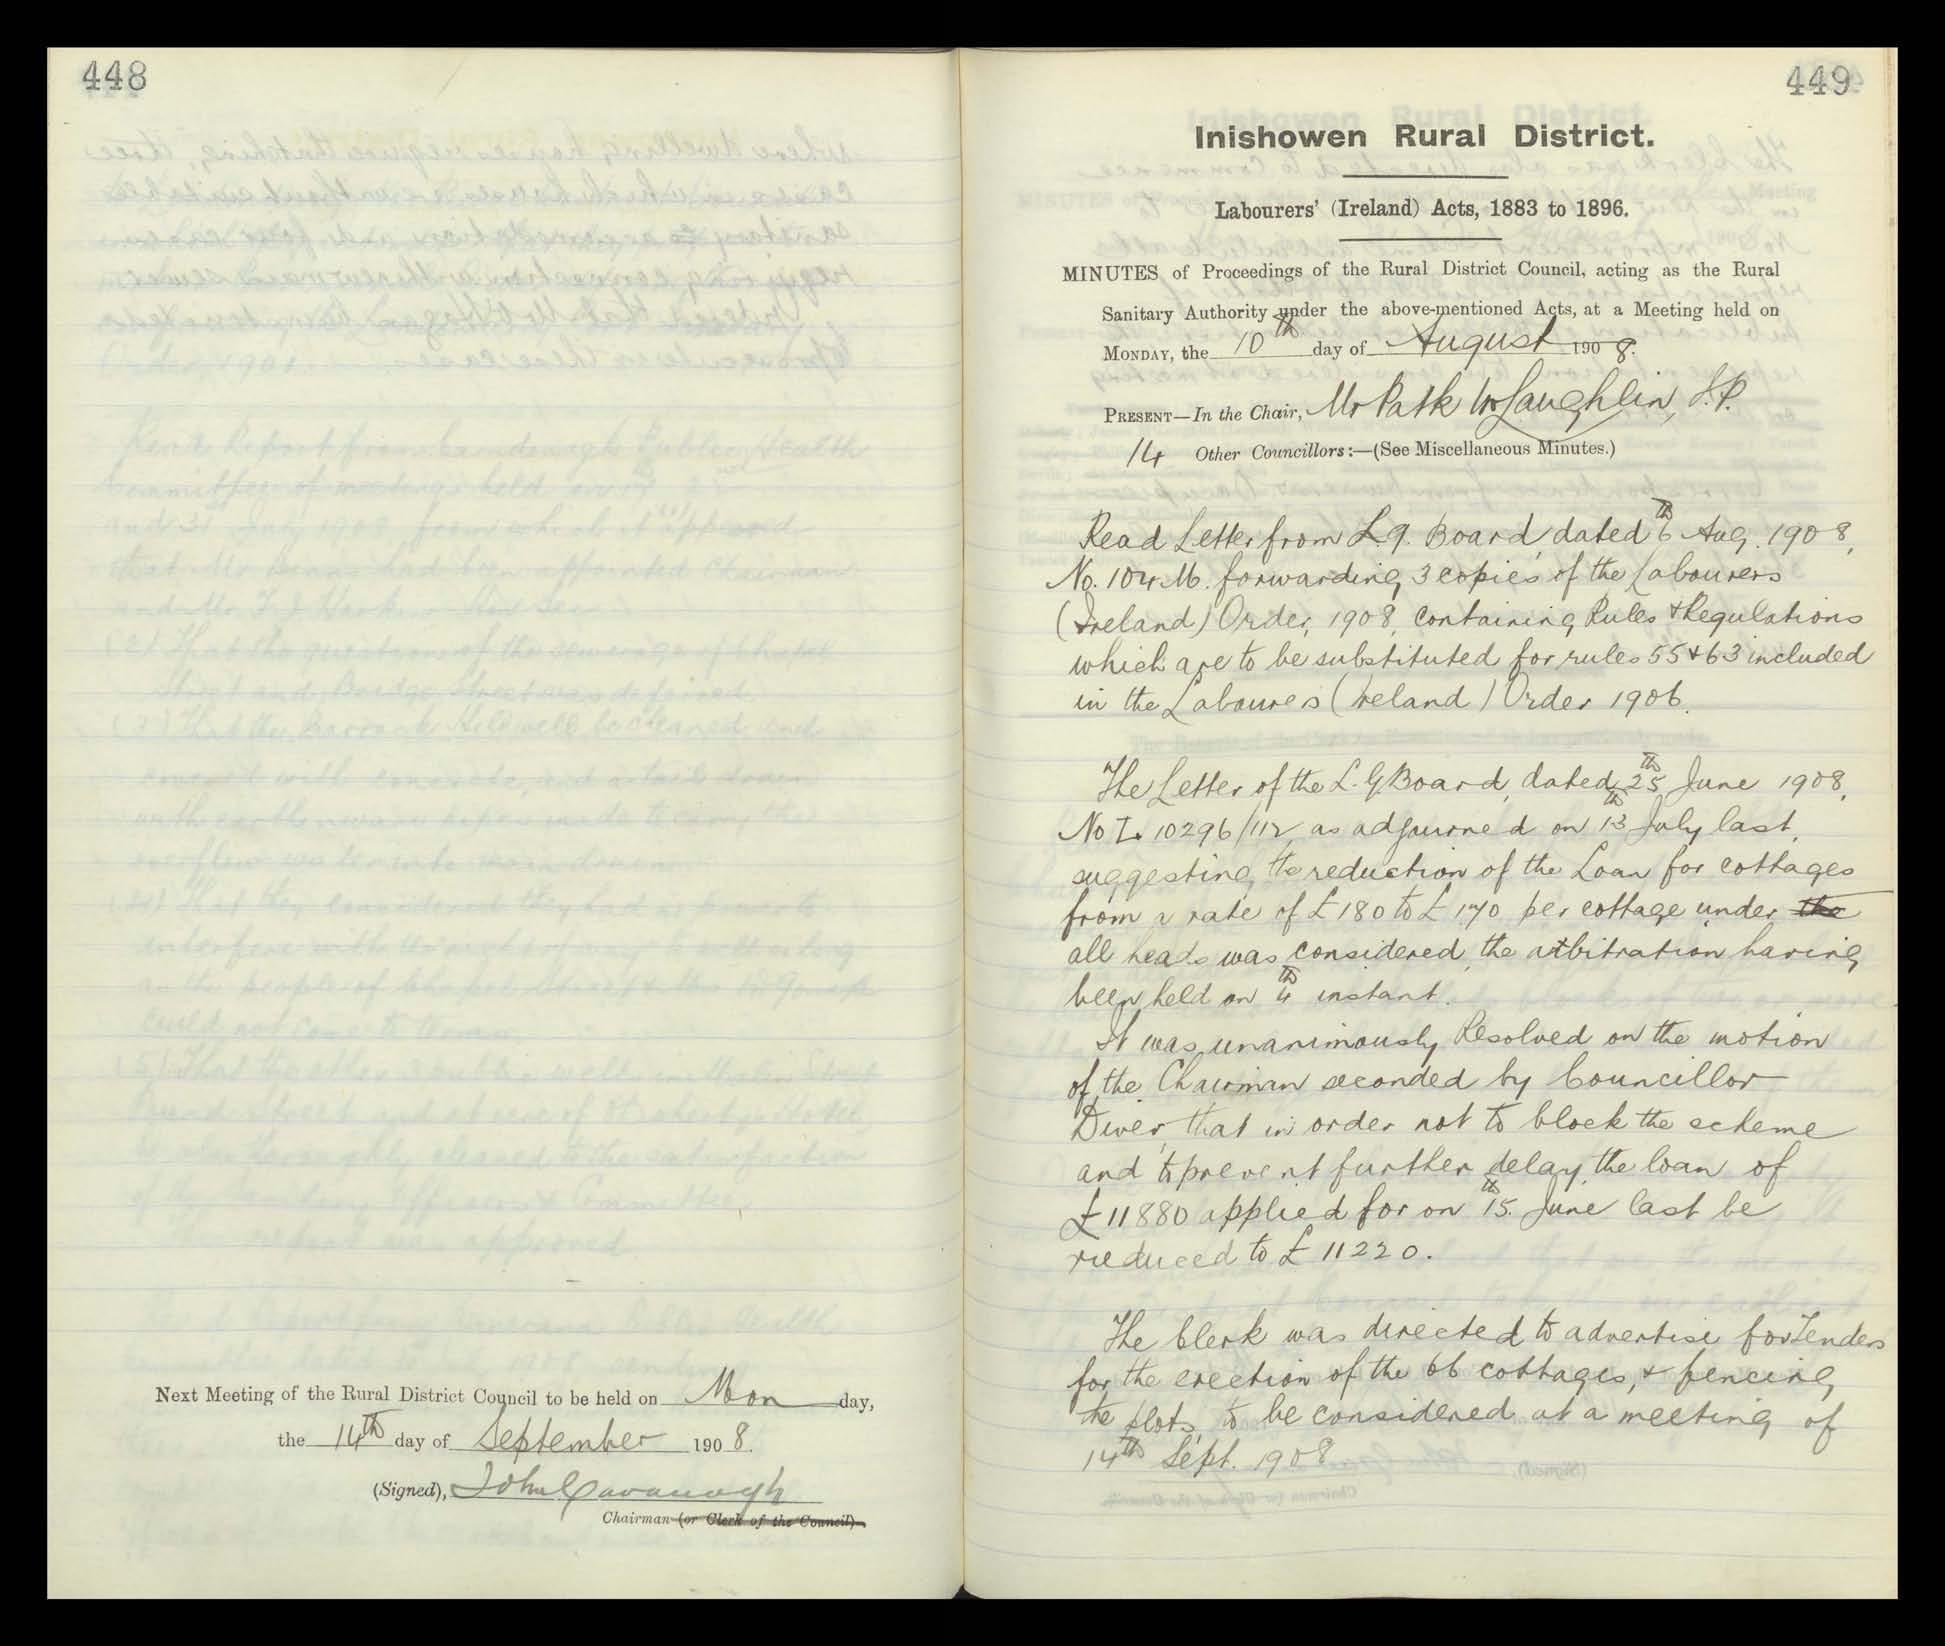 448
Next Meeting of the Rural District Council to be held on Mon day,
the 14th day of September 1908.
(Signed), John Cavanagh
Chairman (or Clerk of the Council)
449
Inishowen Rural District.
Labourers' (Ireland) Acts, 1883 to 1896.
MINUTES of Proceedings of the Rural District Council, acting as the Rural
Sanitary Authority under the above-mentioned Acts, at a Meeting held on
MONDAY, the 10th day of August 1908.
PRESENT—In the Chair, Mr Patk McLaughlin, J.P.
14 Other Councillors:—(See Miscellaneous Minutes.)
Read Letter from L.G. Board, dated 6th Aug. 1908,
No. 104 M. forwarding 3 copies of the Labourers
(Ireland) Order, 1908, containing Rules & Regulations
which are to be substituted for rules 55 & 63 included
in the Labourers (Ireland) Order 1906.
The Letter of the L.G Board, dated 25th June 1908,
No L. 10296/112 as adjourned on 13th July last,
suggesting the reduction of the Loan for cottages
from a rate of £180 to £170 per cottage under the
all heads was considered, the arbitration having
been held on 4th instant.
It was unanimously Resolved on the motion
of the Chairman seconded by Councillor
Diver, that in order not to block the scheme
and to prevent further delay, the loan of
£11880 applied for on 15th June last be
reduced to £11220.
The Clerk was directed to advertise for Tenders
for the erection of the 66 cottages, & fencing
the plots, to be considered at a meeting of
14th Sept. 1908